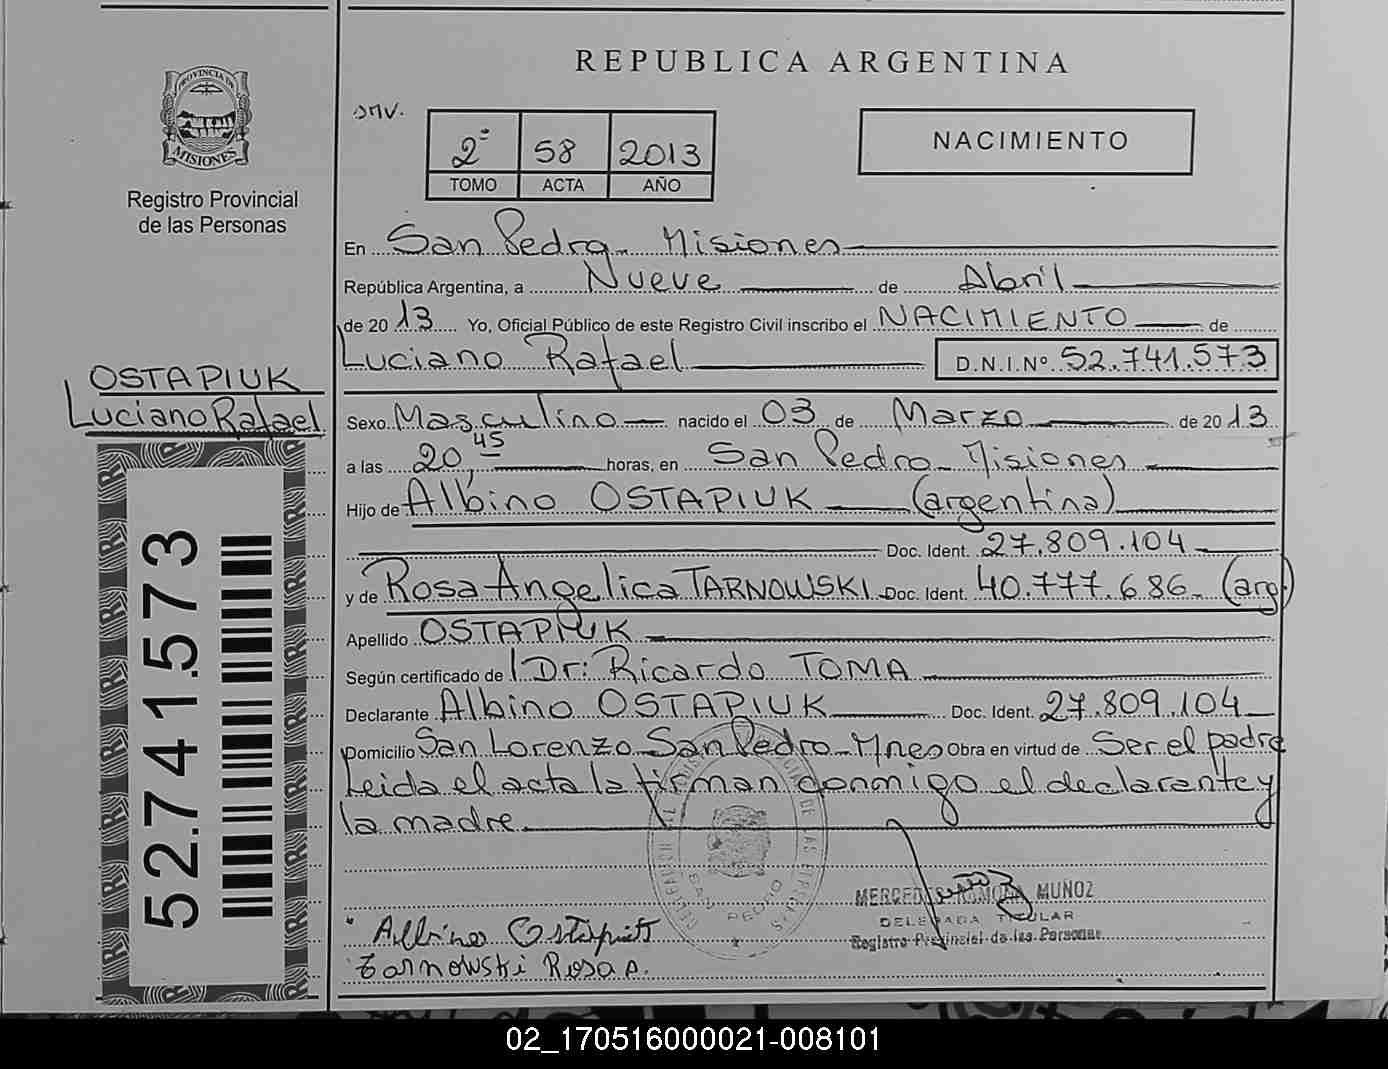 REPUBLICA ARGENTINA
PROVINCIA DE
MISIONES
Registro Provincial
de las Personas
2º 58 2013
TOMO ACTA AÑO
NACIMIENTO
En San Pedro - Misiones
República Argentina, a Nueve de Abril
de 2013 Yo, Oficial Público de este Registro Civil inscribo el NACIMIENTO de
Luciano Rafael D.N.I.Nº 52.741.573
OSTAPIUK
Luciano Rafael
Sexo Masculino nacido el 03 de Marzo de 2013
a las 20,45 horas, en San Pedro - Misiones
Hijo de Albino OSTAPIUK (argentina)
Doc. Ident. 27.809.104
y de Rosa Angelica TARNOWSKI Doc. Ident. 40.777.686 - (arg)
Apellido OSTAPIUK
Según certificado de Dr: Ricardo TOMA
Declarante Albino OSTAPIUK Doc. Ident. 27.809.104
Domicilio San Lorenzo - San Pedro - Mnes Obra en virtud de Ser el padre
Leida el acta la firman conmigo el declarante y
la madre
52.741.573
SAN PEDRO
MERCEDES RAMONA MUÑOZ
DELEGADA TITULAR
Registro Provincial de las Personas
Albino Ostapiuk
Tarnowski Rosa A.
02_170516000021-008101